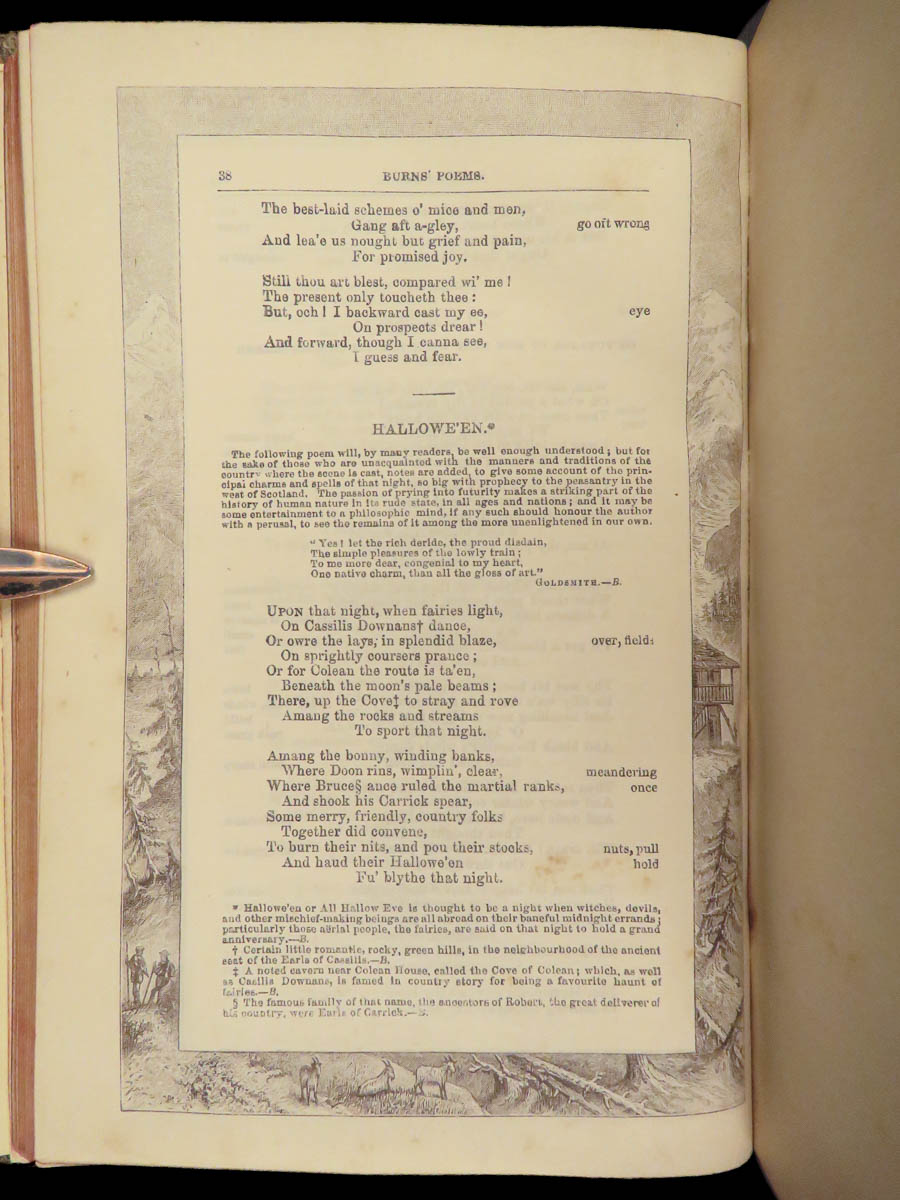 38 BURNS' POEMS.
The best-laid schemes o' mice and men,
Gang aft a-gley, go oft wrong
And lea'e us nought but grief and pain,
For promised joy.
Still thou art blest, compared wi' me!
The present only toucheth thee:
But, och! I backward cast my ee, eye
On prospects drear!
And forward, though I canna see,
I guess and fear.
HALLOWE'EN.*
The following poem will, by many readers, be well enough understood; but for
the sake of those who are unacquainted with the manners and traditions of the
country where the scene is cast, notes are added, to give some account of the prin-
cipal charms and spells of that night, so big with prophecy to the peasantry in the
west of Scotland. The passion of prying into futurity makes a striking part of the
history of human nature in its rude state, in all ages and nations; and it may be
some entertainment to a philosophic mind, if any such should honour the author
with a perusal, to see the remains of it among the more unenlightened in our own.
"Yes! let the rich deride, the proud disdain,
The simple pleasures of the lowly train;
To me more dear, congenial to my heart,
One native charm, than all the gloss of art."
GOLDSMITH.—B.
UPON that night, when fairies light,
On Cassilis Downans† dance,
Or owre the lays, in splendid blaze, over, fields
On sprightly coursers prance;
Or for Colean the route is ta'en,
Beneath the moon's pale beams;
There, up the Cove‡ to stray and rove
Amang the rocks and streams
To sport that night.
Amang the bonny, winding banks,
Where Doon rins, wimplin', clear, meandering
Where Bruce§ ance ruled the martial ranks, once
And shook his Carrick spear,
Some merry, friendly, country folks
Together did convene,
To burn their nits, and pou their stocks, nuts, pull
And haud their Hallowe'en hold
Fu' blythe that night.
* Hallowe'en or All Hallow Eve is thought to be a night when witches, devils,
and other mischief-making beings are all abroad on their baneful midnight errands;
particularly those aërial people, the fairies, are said on that night to hold a grand
anniversary.—B.
† Certain little romantic, rocky, green hills, in the neighbourhood of the ancient
seat of the Earls of Cassilis.—B.
‡ A noted cavern near Colean House, called the Cove of Colean; which, as well
as Casilis Downans, is famed in country story for being a favourite haunt of
fairies.—B.
§ The famous family of that name, the ancestors of Robert, the great deliverer of
his country, were Earls of Carrick.—B.